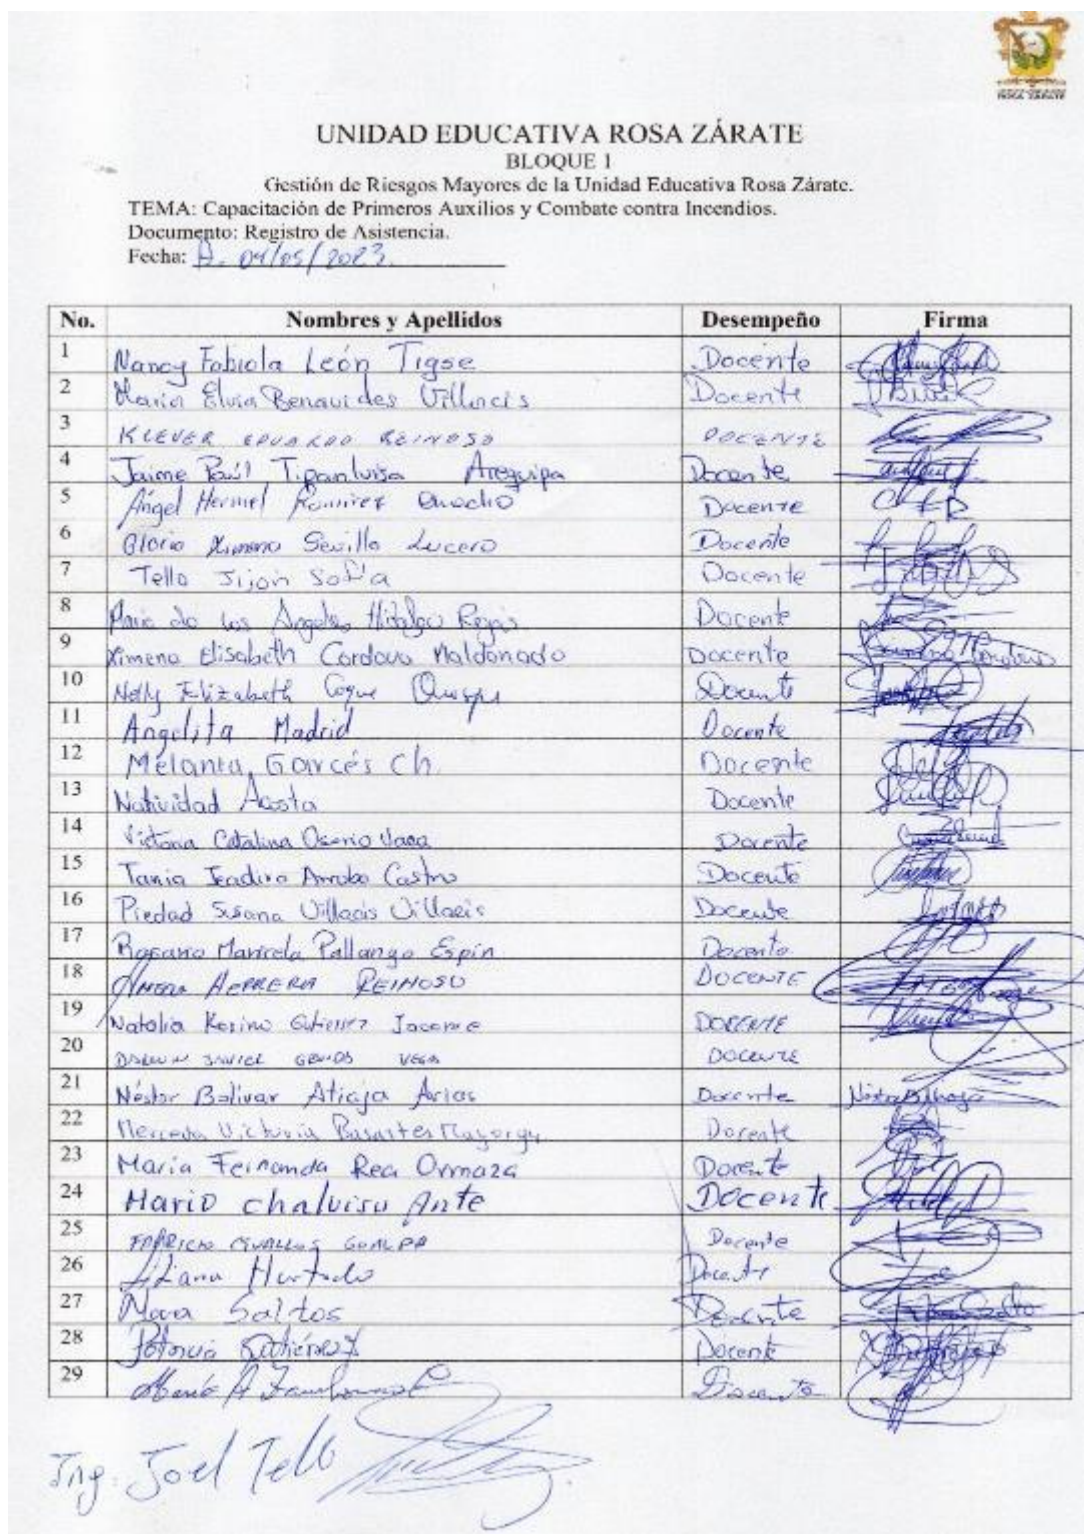 ROSA ZÁRATE
UNIDAD EDUCATIVA ROSA ZÁRATE
BLOQUE 1
Gestión de Riesgos Mayores de la Unidad Educativa Rosa Zárate.
TEMA: Capacitación de Primeros Auxilios y Combate contra Incendios.
Documento: Registro de Asistencia.
Fecha: A. 04/05/2023.
No. Nombres y Apellidos Desempeño Firma
1 Nancy Fabiola León Tigse Docente
2 María Elvia Benavides Villacis Docente
3 KLEVER EDUARDO REINOSO DOCENTE
4 Jaime Paúl Tipanluisa Arequipa Docente
5 Ángel Hermel Ramirez Docente
6 Gloria Ximena Sevilla Lucero Docente
7 Tello Jijón Sofía Docente
8 Maria de los Angeles Hidalgo Rojas Docente
9 Ximena Elisabeth Cordova Maldonado Docente
10 Nelly Elizabeth Coque Quispe Docente
11 Angelita Madrid Docente
12 Melania Garcés Ch. Docente
13 Natividad Acosta Docente
14 Victoria Catalina Osorio Vaca Docente
15 Tania Arrobo Castro Docente
16 Piedad Susana Villacis Villacis Docente
17 Rosario Maricela Pallango Espín Docente
18 HERRERA REINOSO DOCENTE
19 Natalia Gutierrez Jacome DOCENTE
20 JAVIER VEGA DOCENTE
21 Néstor Bolívar Atiaja Arias Docente
22 Mercedes Victoria Basantes Mayorga Docente
23 María Fernanda Rea Ormaza Docente
24 Mario chaluisa Ante Docente
25 FABRICIO Docente
26 Liliana Hurtado Docente
27 Saltos Docente
28 Patricia Gutiérrez Docente
29 María A Docente
Ing. Joel Tello